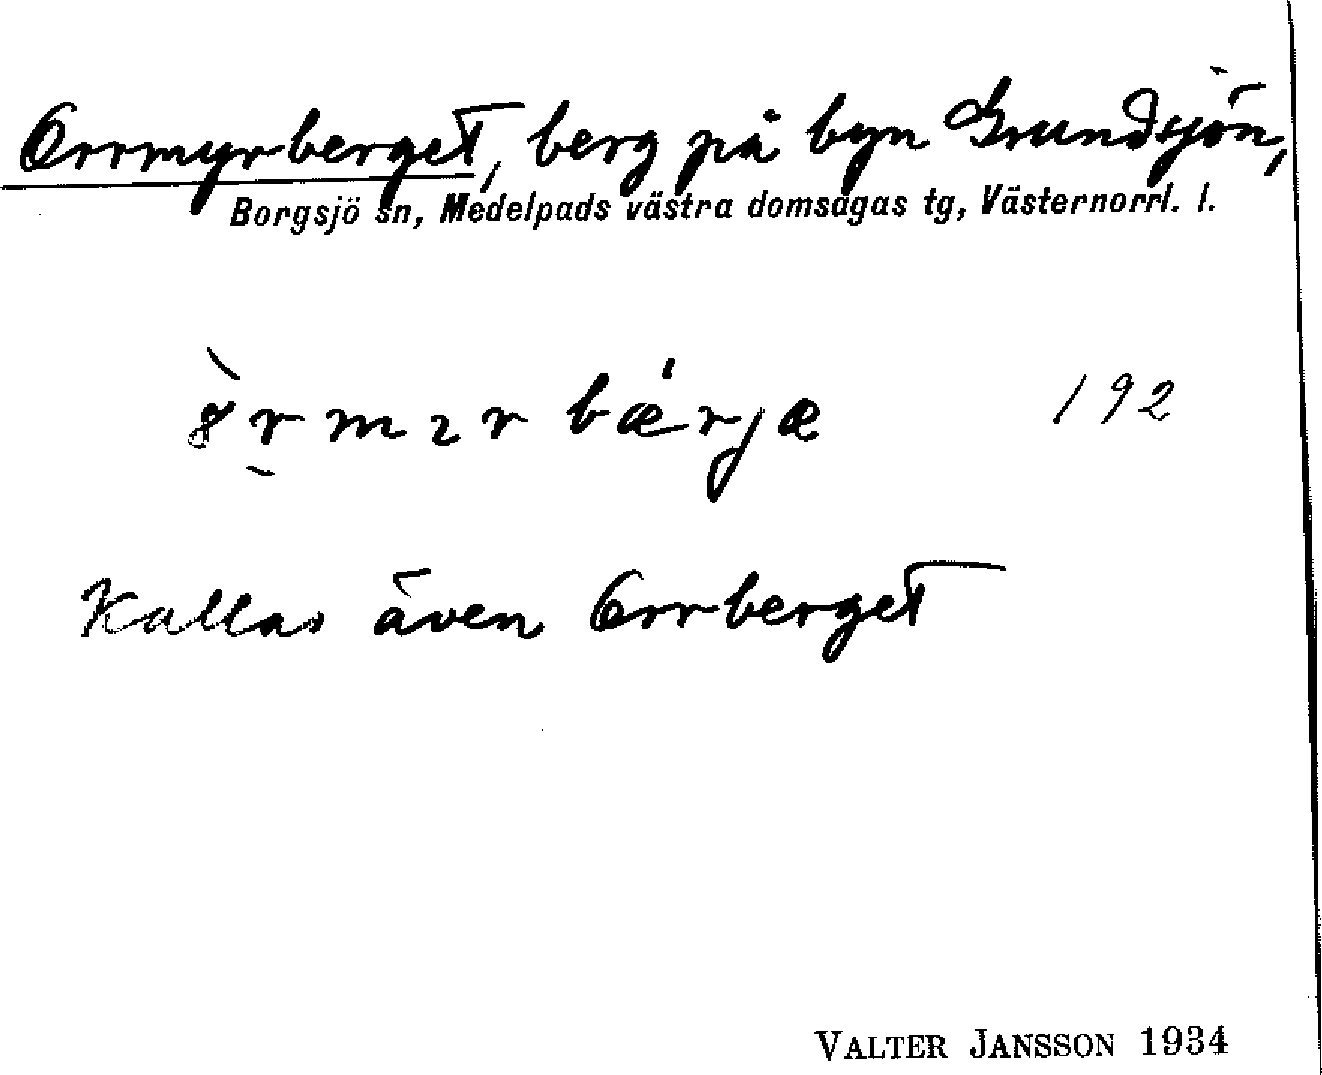 Orrmyrberget, berg på byn Grundsjön,
Borgsjö sn, Medelpads västra domsagas tg, Västernorrl. l.
192
Kallas även Orrberget
VALTER JANSSON 1934